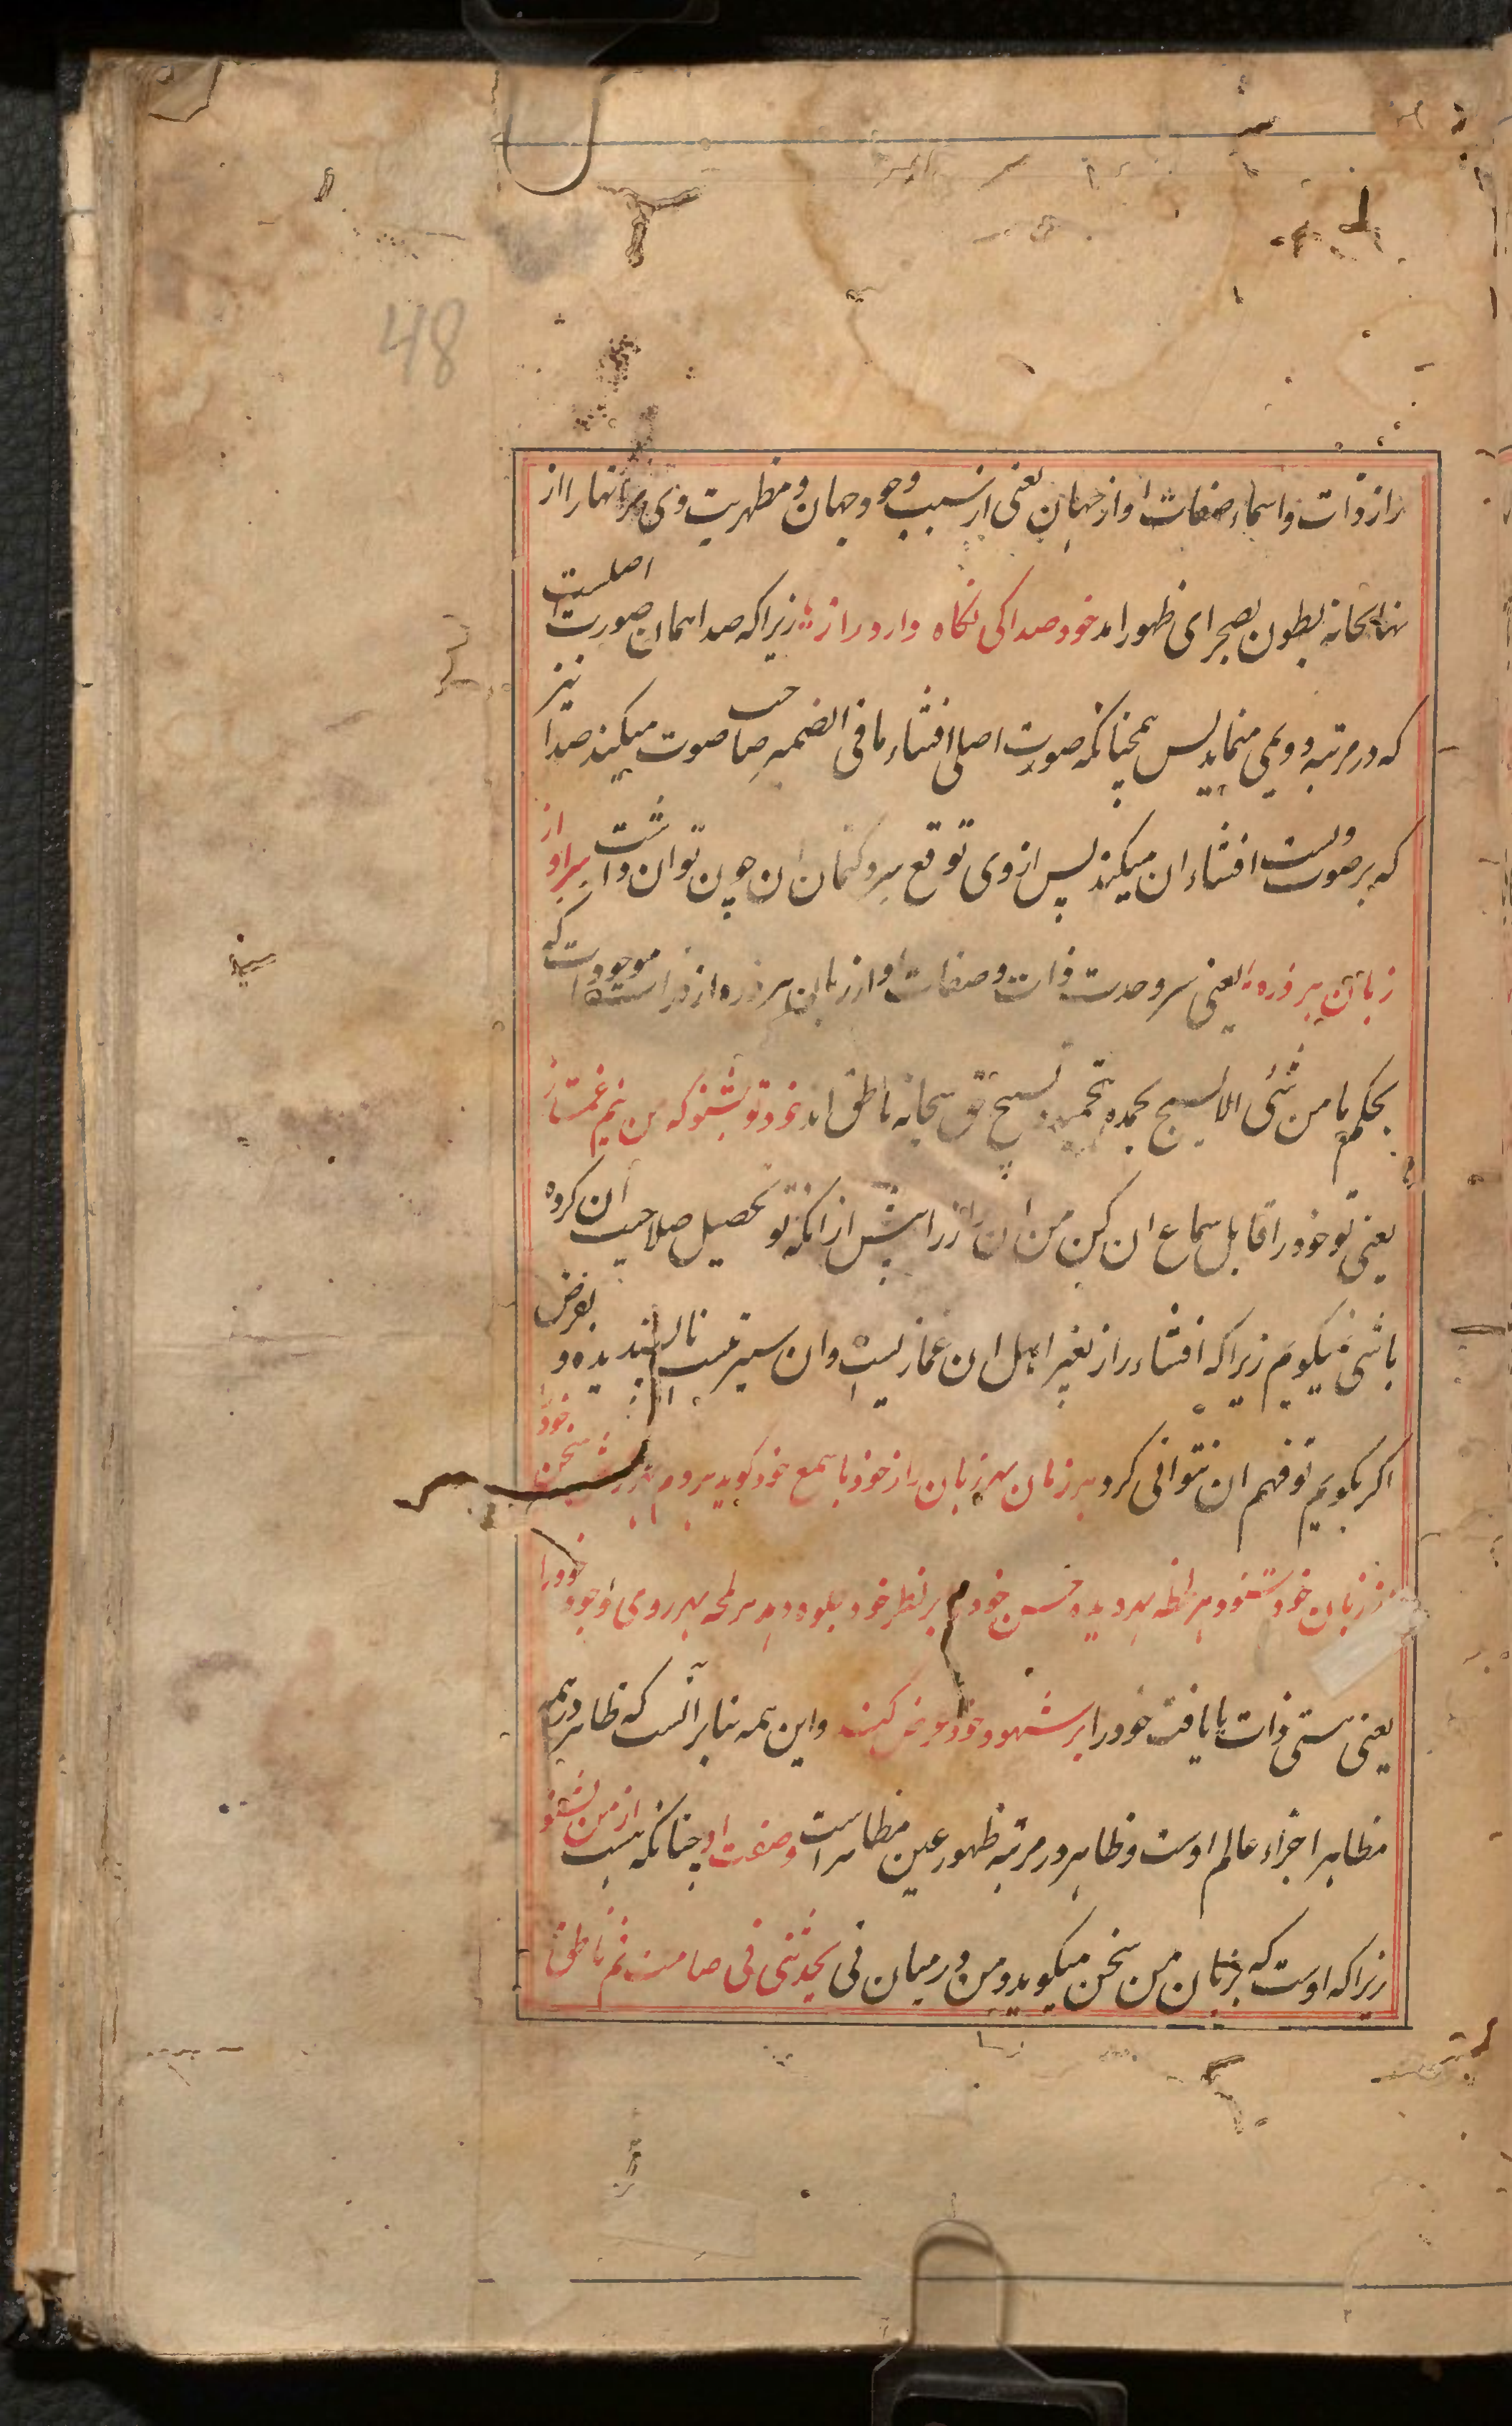 48
راز ذات و اسماء و صفات او از جهان یعنی از سبب وجود جهان و مظهریت وی مر انها را از
نهانخانه بطون بصحرای ظهور امد خود صدا کی نگاه دارد راز زیرا که صدا همان صورت اصلست
که در مرتبه دویمی مینماید پس همچنانکه صوت اصلی افشاء ما فی الضمیر صاحب صوت میکند صدا نیز
که بر صوتست افشاء ان میکند پس از وی توقع سر و کتمان ان چون توان داشت سر او از
زبان هر ذره یعنی سر وحدت ذات و صفات او از زبان هر ذره از ذرات موجودات که
بحکم ما من شئی الا یسبح بحمده بتحمید و تسبیح حق سبحانه ناطق اند خود تو بشنو که من نیم غماز
یعنی تو خود را قابل سماع ان کن من ان راز را پیش از انکه تو تحصیل صلاحیت ان کرده
باشی نمیگویم زیرا که افشاء راز بغیر اهل ان غمازیست و ان سیرتیست ناپسندیده و بفرض
اگر بگویم تو فهم ان نتوانی کرد هر زمان بهر زبان راز خود با سمع خود گوید هر دم سخن خود را
از زبان خود شنود هر لحظه بهر دیده حسن خود بر نظر خود جلوه دهد هر لمحه بهر روی وجود خود را
یعنی هستی ذات یا یافت خود را بر شهود خود عرض کند و این همه بنابر آنست که ظاهر در همه
مظاهر اجزاء عالم اوست و ظاهر در مرتبه ظهور عین مظاهر است وصفت او چنانکه هست از من بشنو
زیرا که اوست که بزبان من سخن میگوید و من در میان نی یحدثنی فی صامت ثم ناطق